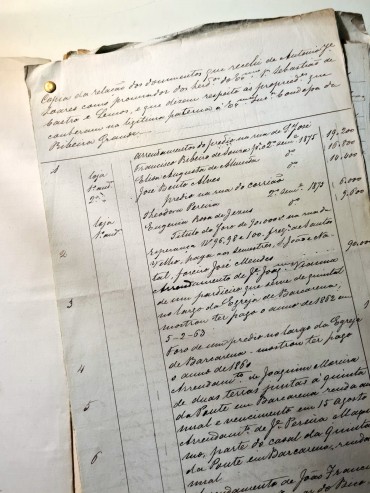 Copia da relação dos documentos que recebi de Antonio Je
Soares como procurador dos Snrs D. Sebastião de
Castro e Lemos, e que dizem respeito as propriedes que
couberam na legitima paterna á Condessa da
Ribeira Grande
1 Arrendamentos do predio na rua de S. José
loja Francisco Ribeiro de Souza 2º semre 1875 19,200
1º and. Elisa Augusta de Almeida dº 16,800
2º José Bento Alves dº 14,400
predio na rua do
loja Theodora Pereira 2º semre 1875 6,000
1º and. Eugenia Rosa de Jesus dº 9,600
2 Titulo do foro de 30,000 rs na rua da
Esperança Nº 96, 98 e 100, freguezia de Santos
Velho, paga aos semestres, S. João e Na-
tal, foreiro José Mendes
3 Arrendamento de Je João Vianna
de um pardieiro que serve de quintal
no largo da Egreja de Barcarena,
mostrou ter pago o anno de 1862 em
5-2-63
4 Foro de um predio no largo da Egreja
de Barcarena - mostrou ter pago
o anno de 1860
5 Arrendamto de Joaquim Moreira
de duas terras juntas á quinta
da Ponte em Barcarena renda an-
nual e vencimento em 15 agosto
6 Arrendamto de Je Pereira
mo, parte do casal da Quinta
da Ponte em Barcarena, renda
annual
Arrendamento de João Franco